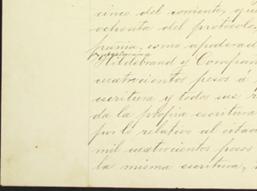 cinco del corriente, y
ochenta del protocolo,
prima, como apoderad
Hildebrand y Compañ
cuatrocientos pesos
escritura y todos sus
da la propia escritura
por lo relativo al citado
mil cuatrocientos pesos
la misma escritura,